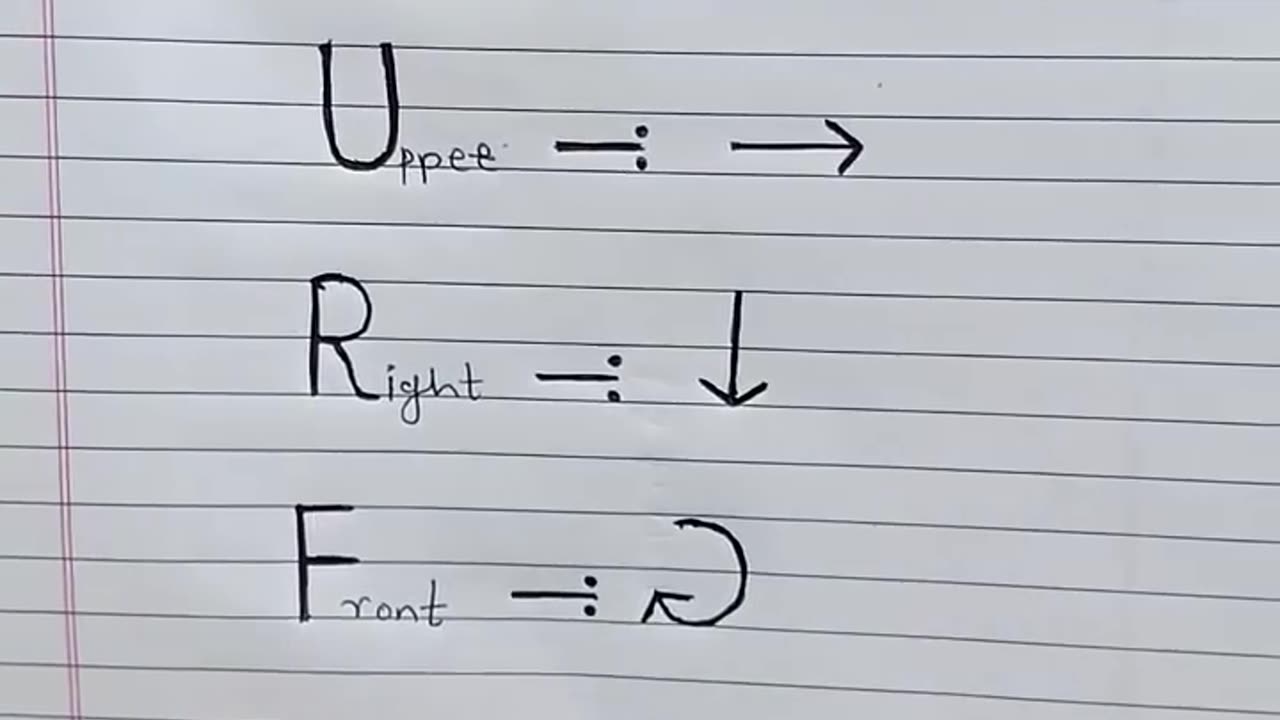 Upper —: →
Right —: ↓
Front —: ⤸